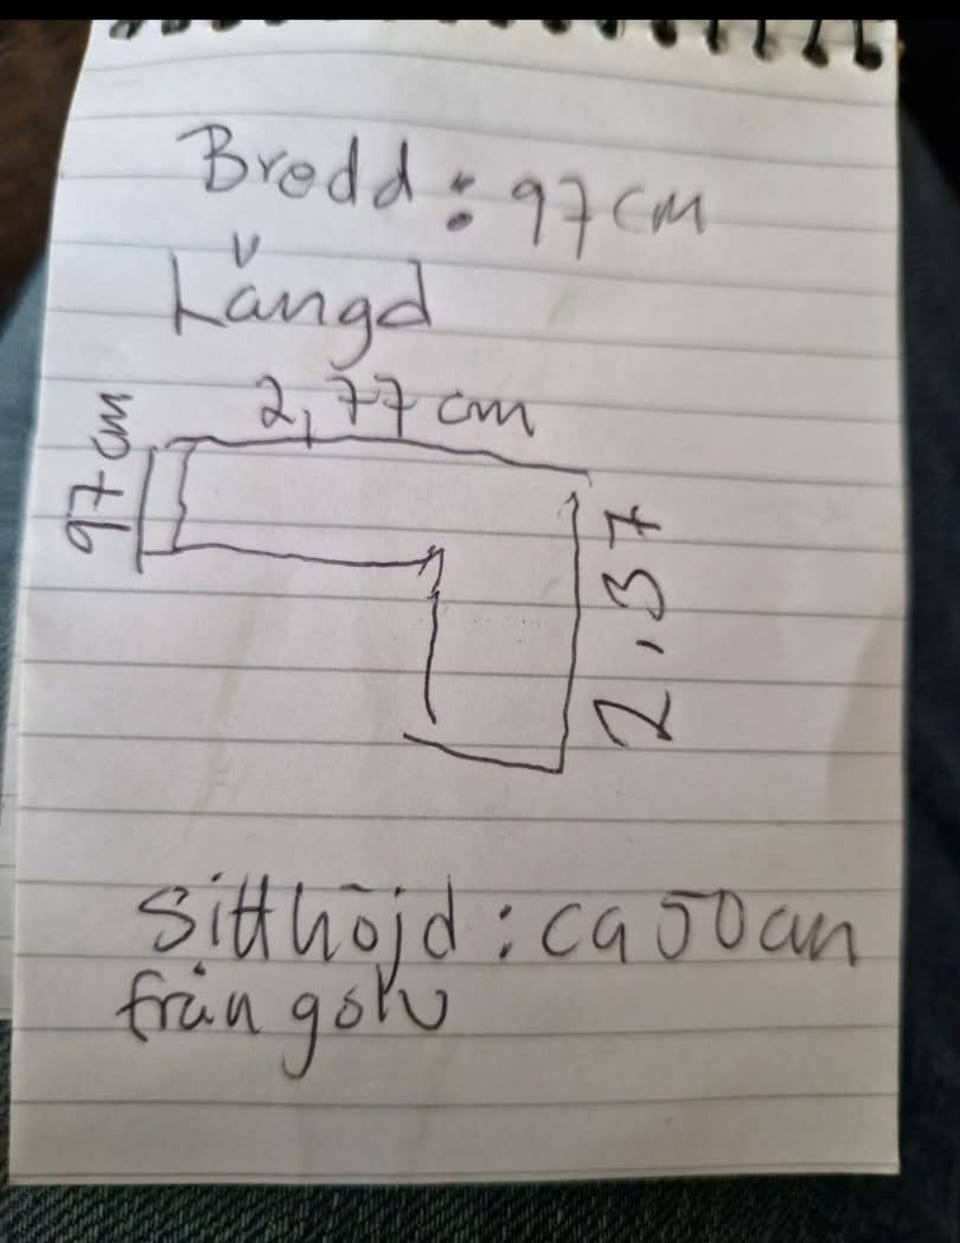 Bredd: 97 cm
Längd
2,77 cm
97 cm
2,37
Sitthöjd: ca 50 cm
från golv